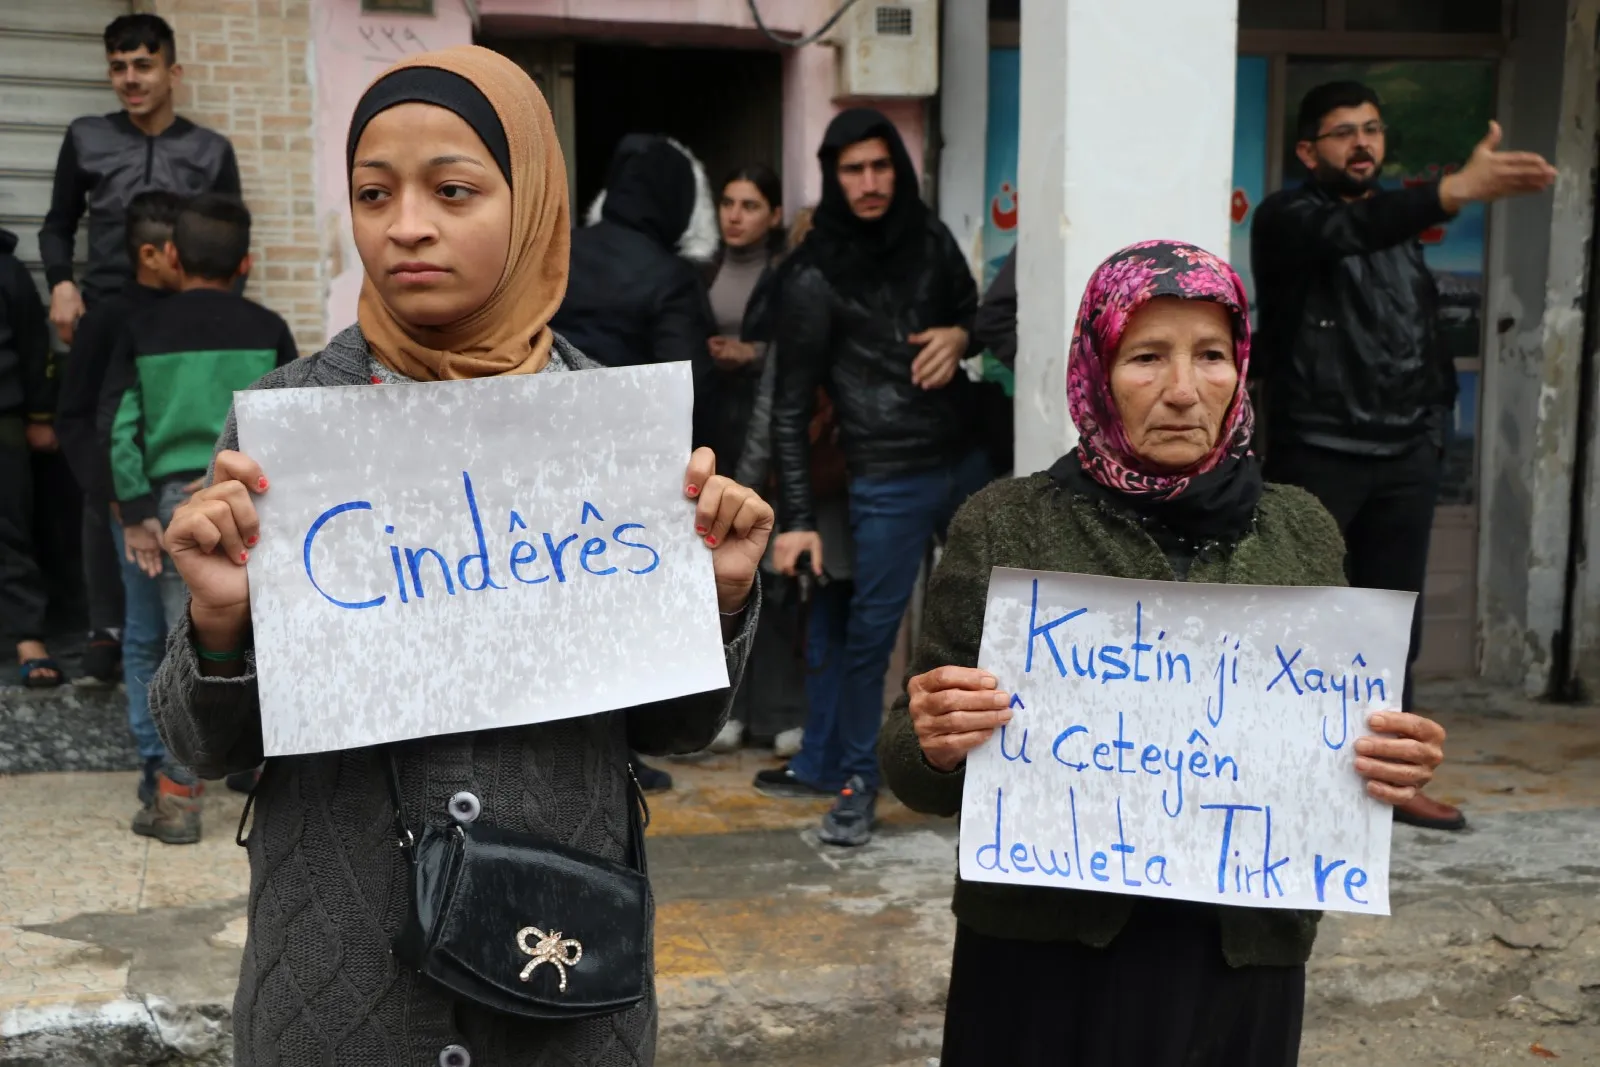 ٢٢٩
Cindêrês
Kuştin ji xayîn
û Çeteyên
dewleta Tirk re